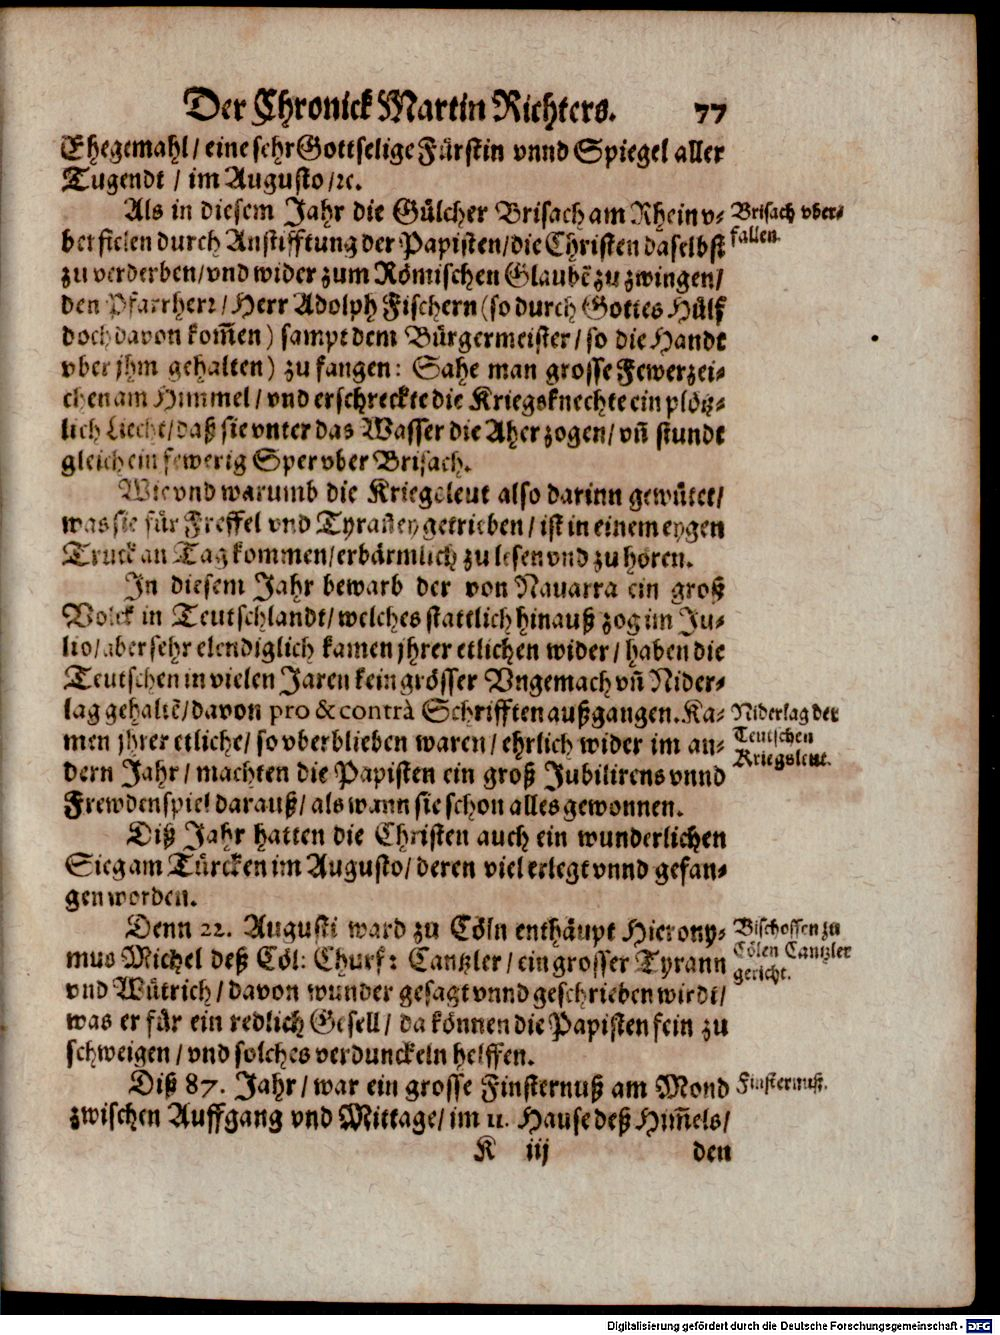 Der Chronick Martin Richters. 77
Ehegemahl / eine sehr Gottselige Fürstin vnnd Spiegel aller
Tugendt / im Augusto /ꝛc.
Als in diesem Jahr die Gülcher Brisach am Rhein v-
berfielen durch Anstifftung der Papisten / die Christen daselbst
zu verderben / vnd wider zum Römischen Glaubẽ zu zwingen /
den Pfarrherꝛ / Herr Adolph Fischern (so durch Gottes Hülf
doch davon kom̃en) sampt dem Bürgermeister / so die Handt
vber jhm gehalten) zu fangen: Sahe man grosse Fewerzei-
chen am Himmel / vnd erschreckte die Kriegsknechte ein plötz-
lich Liecht / daß sie vnter das Wasser die Aher zogen / vñ stundt
gleich ein fewerig Sper vber Brisach.
Wie vnd warumb die Kriegsleut also darinn gewütet /
was sie für Freffel vnd Tyrañey getrieben / ist in einem eygen
Truck an Tag kommen / erbärmlich zu lesen vnd zu hören.
In diesem Jahr bewarb der von Nauarra ein groß
Volck in Teutschlandt / welches stattlich hinauß zog im Ju-
lio / aber sehr elendiglich kamen jhrer etlichen wider / haben die
Teutschen in vielen Jaren kein grösser Vngemach vñ Nider-
lag gehaltẽ / davon pro & contrà Schrifften außgangen. Ka-
men jhrer etliche / so vberblieben waren / ehrlich wider im an-
dern Jahr / machten die Papisten ein groß Jubilirens vnnd
Frewdenspiel darauß / als wann sie schon alles gewonnen.
Diß Jahr hatten die Christen auch ein wunderlichen
Sieg am Türcken im Augusto / deren viel erlegt vnnd gefan-
gen worden.
Denn 22. Augusti ward zu Cöln enthäupt Hierony-
mus Michel deß Cöl: Churf: Cantzler / ein grosser Tyrann
vnd Wütrich / davon wunder gesagt vnnd geschrieben wirdt /
was er für ein redlich Gesell / da können die Papisten fein zu
schweigen / vnd solches verdunckeln helffen.
Diß 87. Jahr / war ein grosse Finsternuß am Mond
zwischen Auffgang vnd Mittage / im 11. Hause deß Him̃els /
K iij den
Brisach vber-
fallen.
Niderlag der
Teutschen
Kriegsleut.
Bischoffen zu
Cölen Cantzler
gericht.
Finsternuß.
Digitalisierung gefördert durch die Deutsche Forschungsgemeinschaft - DFG